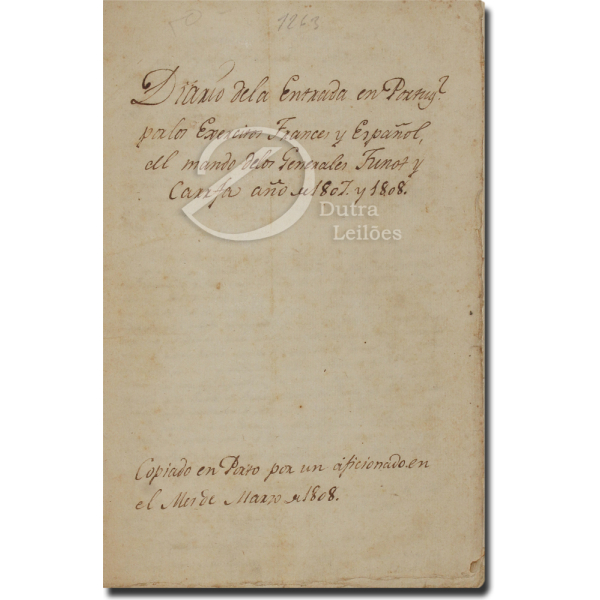 1263
Diario dela Entrada en Portug.l
por los Exercitos Frances y Español,
al mando delos Generales Junot y
Carafa año de 1807. y 1808.
Dutra
Leilões
Copiado en Porto por un aficionado en
el Mes de Marzo de 1808.